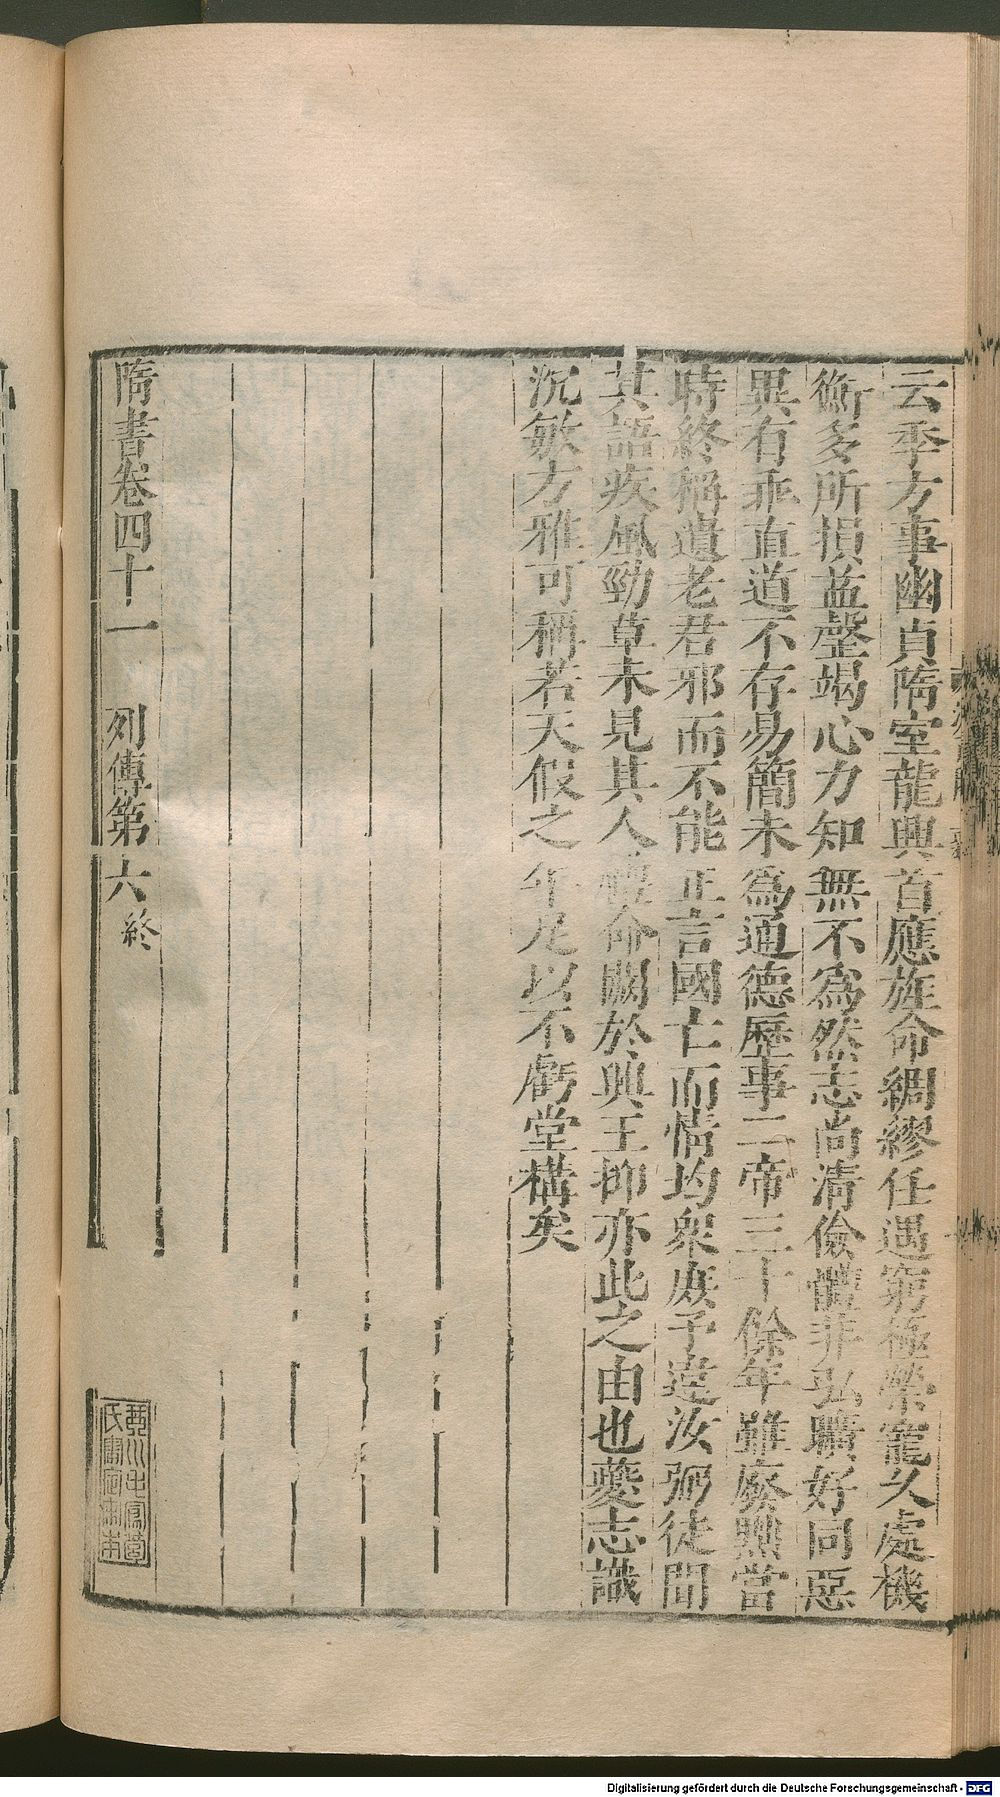 云季方事幽貞隋室龍興首應旌命綢繆任遇窮極榮寵久處機
衡多所損益罄竭心力知無不爲然志尚清儉體非弘曠好同惡
異有乖直道不存易簡未爲通德歷事二帝三十餘年雖廢黜當
時終稱遺老君邪而不能正言國亡而情均衆庶予違汝弼徒聞
其語疾風勁草未見其人禮命闕於興王抑亦此之由也夔志識
沉敏方雅可稱若天假之年足以不虧堂構矣
隋書卷四十一 列傳第六終
Digitalisierung gefördert durch die Deutsche Forschungsgemeinschaft - DFG